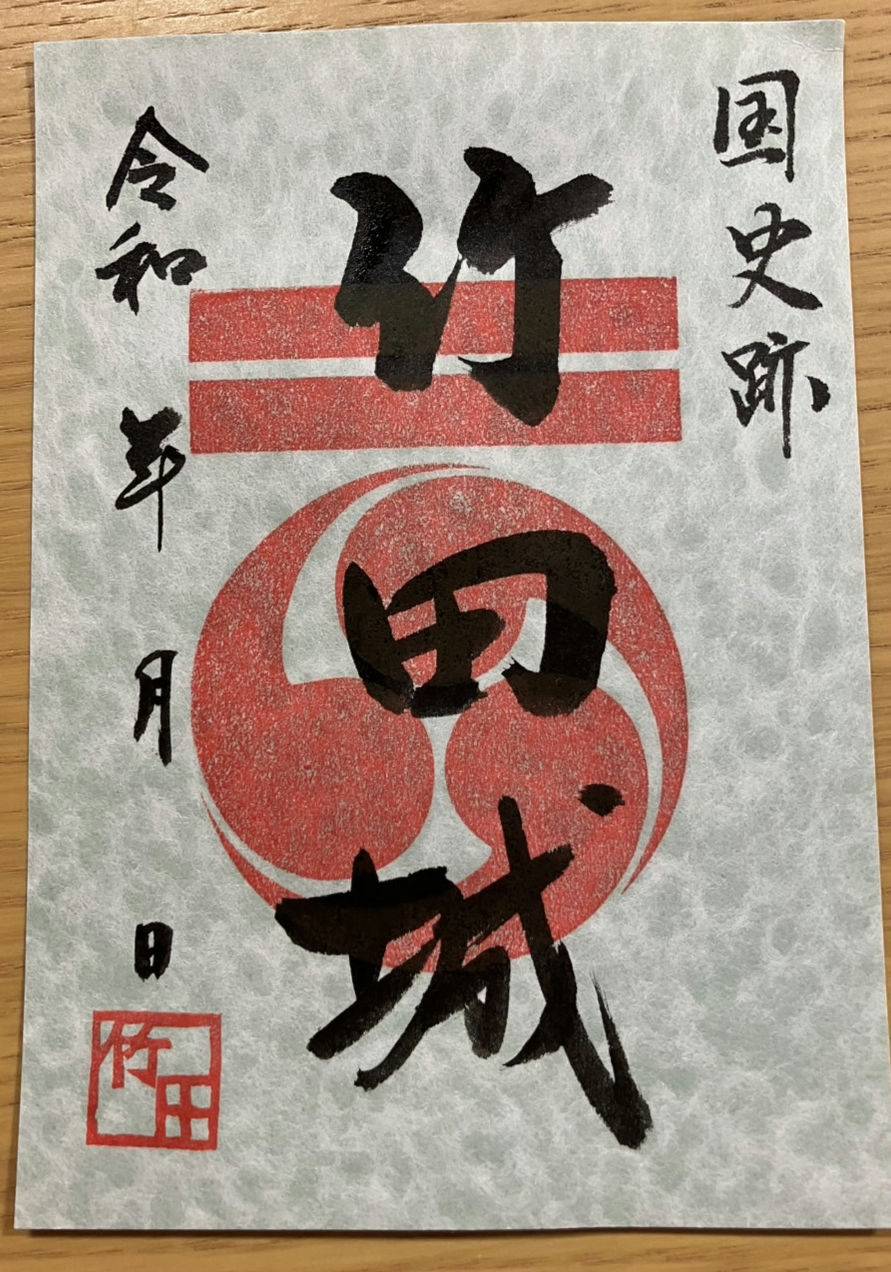 国史跡
竹田城
令和 年 月 日
竹田